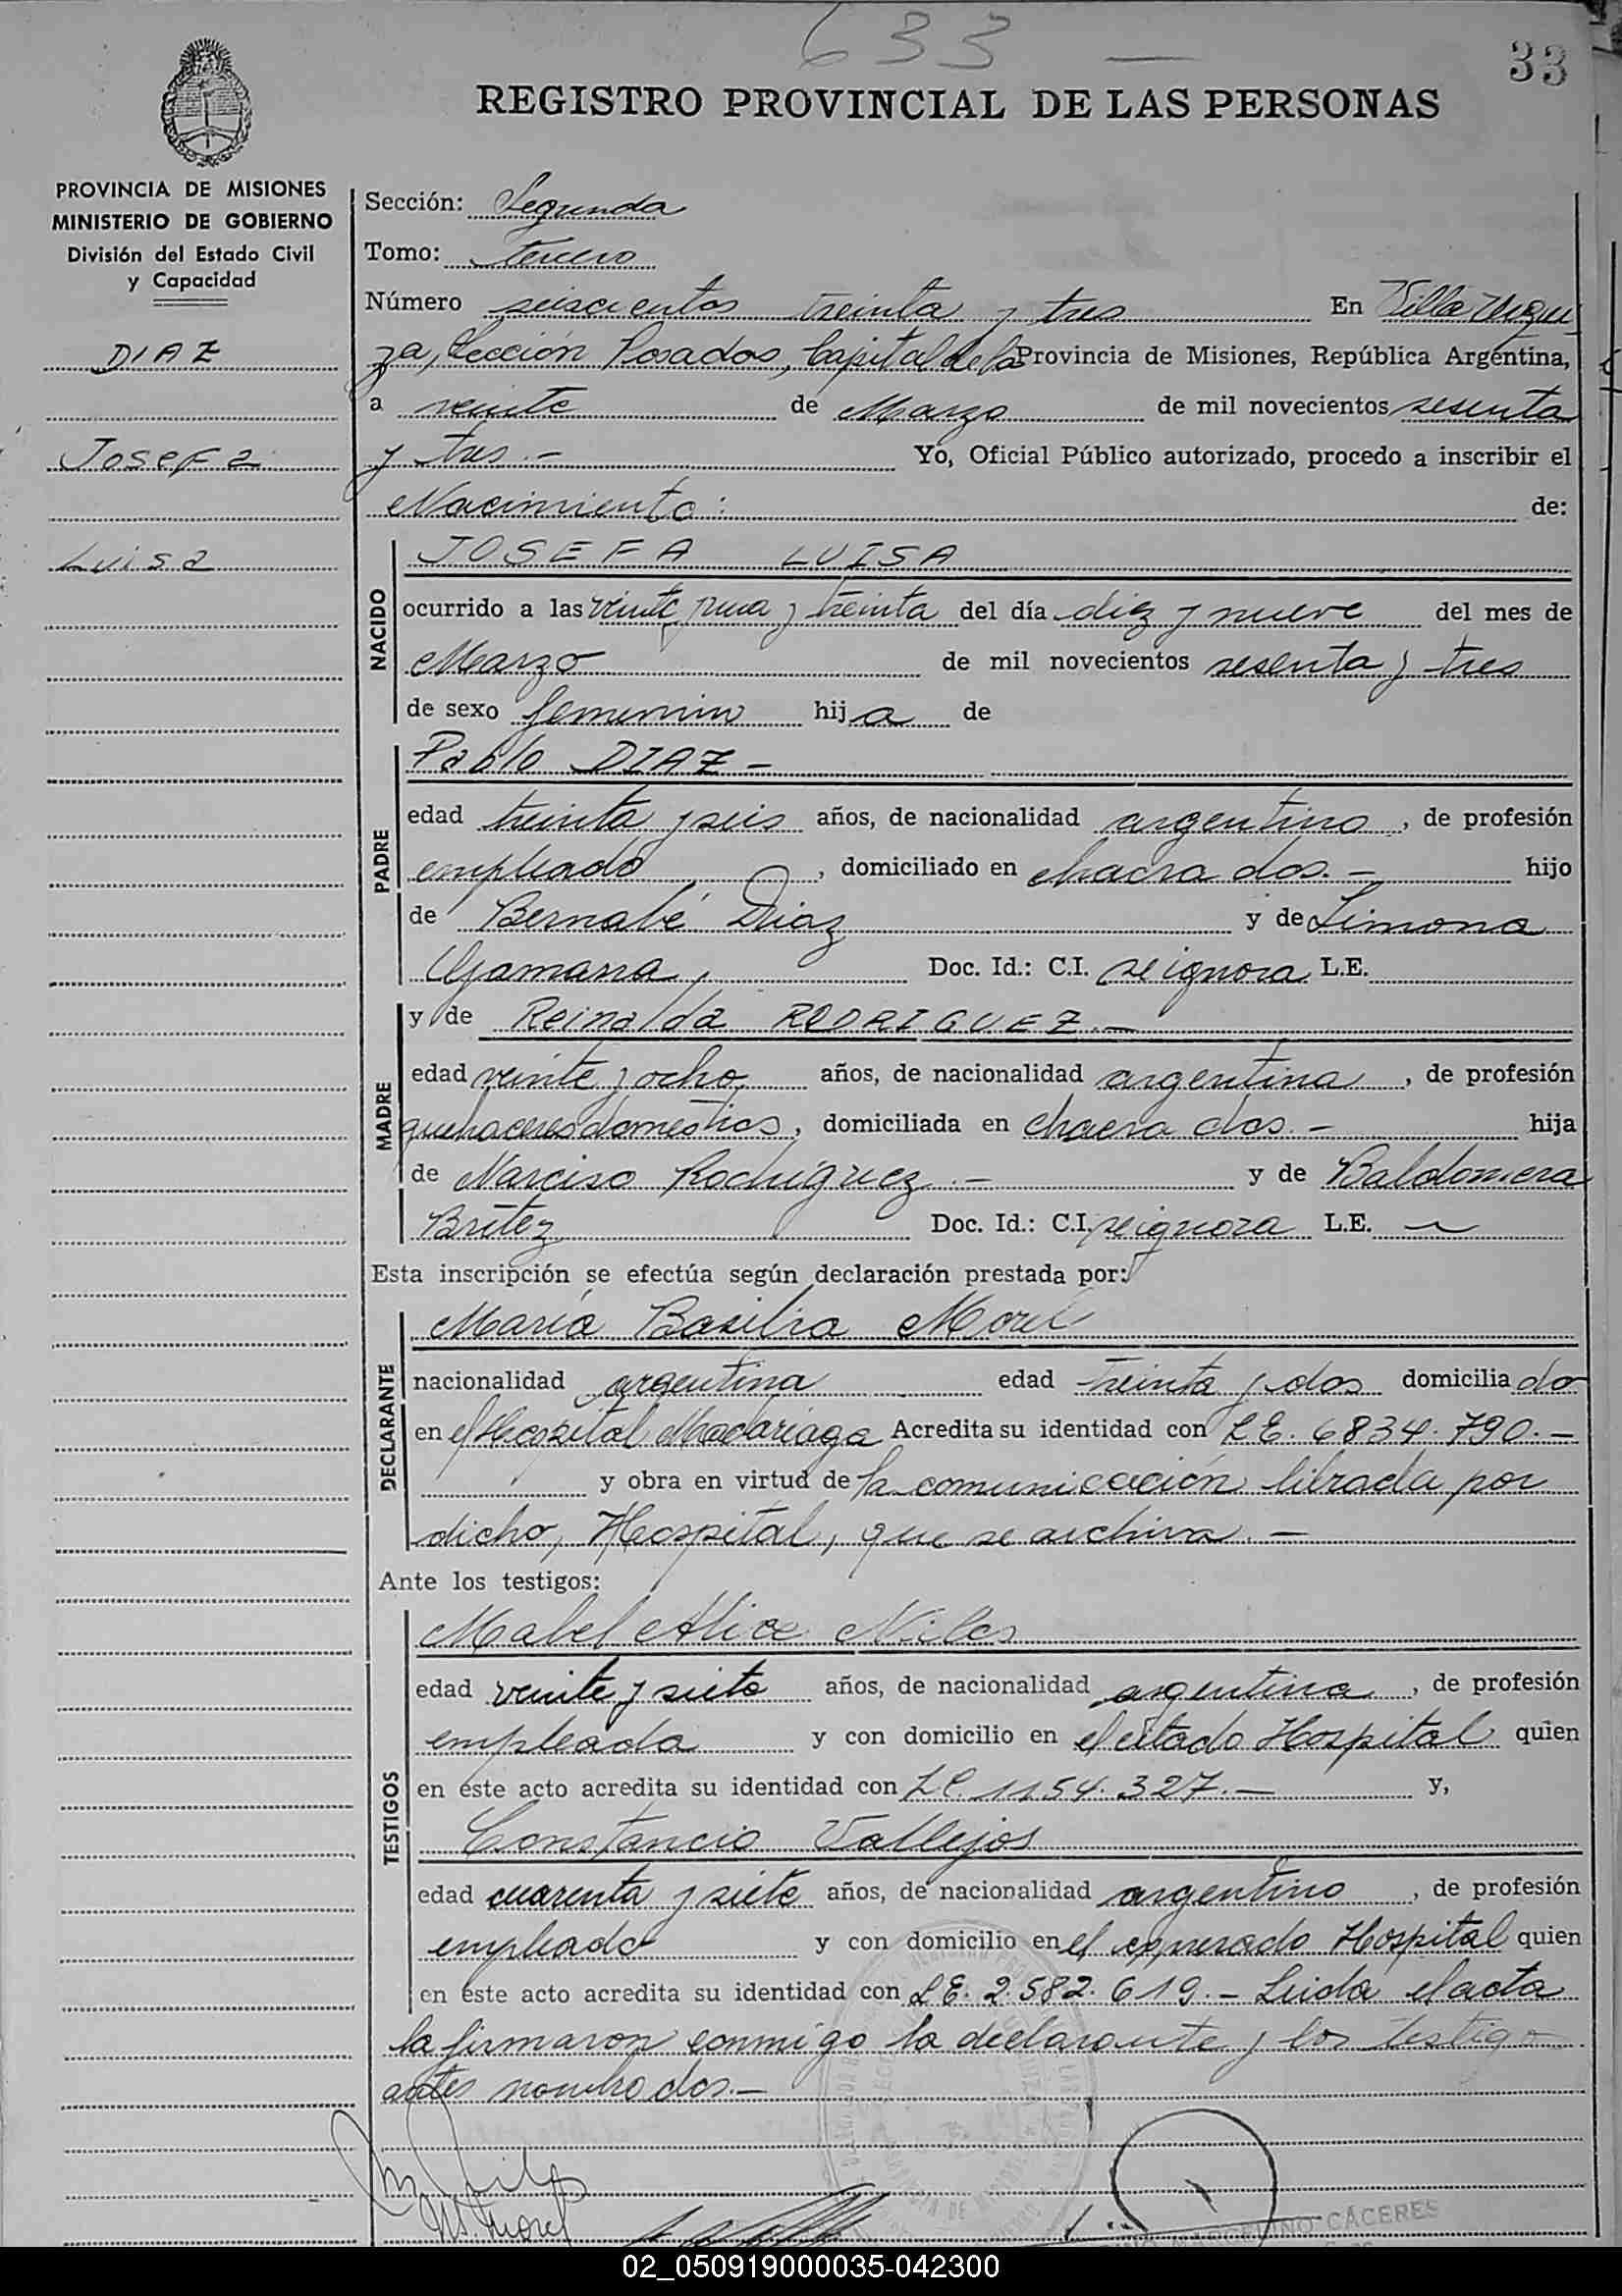 633 —
33
REGISTRO PROVINCIAL DE LAS PERSONAS
PROVINCIA DE MISIONES
MINISTERIO DE GOBIERNO
División del Estado Civil
y Capacidad
DIAZ
Josefa
Luisa
Sección: Segunda
Tomo: Tercero
Número seiscientos treinta y tres En Villa Urqui
za, Sección Posadas, Capital de la Provincia de Misiones, República Argentina,
a veinte de Marzo de mil novecientos sesenta
y tres.- Yo, Oficial Público autorizado, procedo a inscribir el
Nacimiento: de:
NACIDO
JOSEFA LUISA
ocurrido a las veinte y una y treinta del día diez y nueve del mes de
Marzo de mil novecientos sesenta y tres
de sexo femenino hija de
PADRE
Pablo DIAZ -
edad treinta y seis años, de nacionalidad argentino, de profesión
empleado, domiciliado en chacra dos.- hijo
de Bernabé Diaz y de Simona
Gamarra, Doc. Id.: C.I. se ignora L.E.
MADRE
y de Reinalda RODRIGUEZ.-
edad veinte y ocho años, de nacionalidad argentina, de profesión
quehaceres domésticos, domiciliada en chacra dos.- hija
de Narciso Rodriguez.- y de Baldomera
Britez Doc. Id.: C.I. se ignora L.E. —
Esta inscripción se efectúa según declaración prestada por:
DECLARANTE
María Basilia Morel
nacionalidad argentina edad treinta y dos domiciliado
en el Hospital Madariaga Acredita su identidad con L.E. 6834.790.-
y obra en virtud de la comunicación librada por
dicho, Hospital, que se archiva.-
Ante los testigos:
TESTIGOS
Mabel Alice Niles
edad veinte y siete años, de nacionalidad argentina, de profesión
empleada y con domicilio en el citado Hospital quien
en este acto acredita su identidad con L.C. 1154.327.- y,
Constancio Vallejos
edad cuarenta y siete años, de nacionalidad argentino, de profesión
empleado y con domicilio en el expresado Hospital quien
en este acto acredita su identidad con L.E. 2.582.619.- Leida el acta
la firmaron conmigo la declarante y los testigo
antes nombrados.-
M. Morel
CÁCERES
02_050919000035-042300